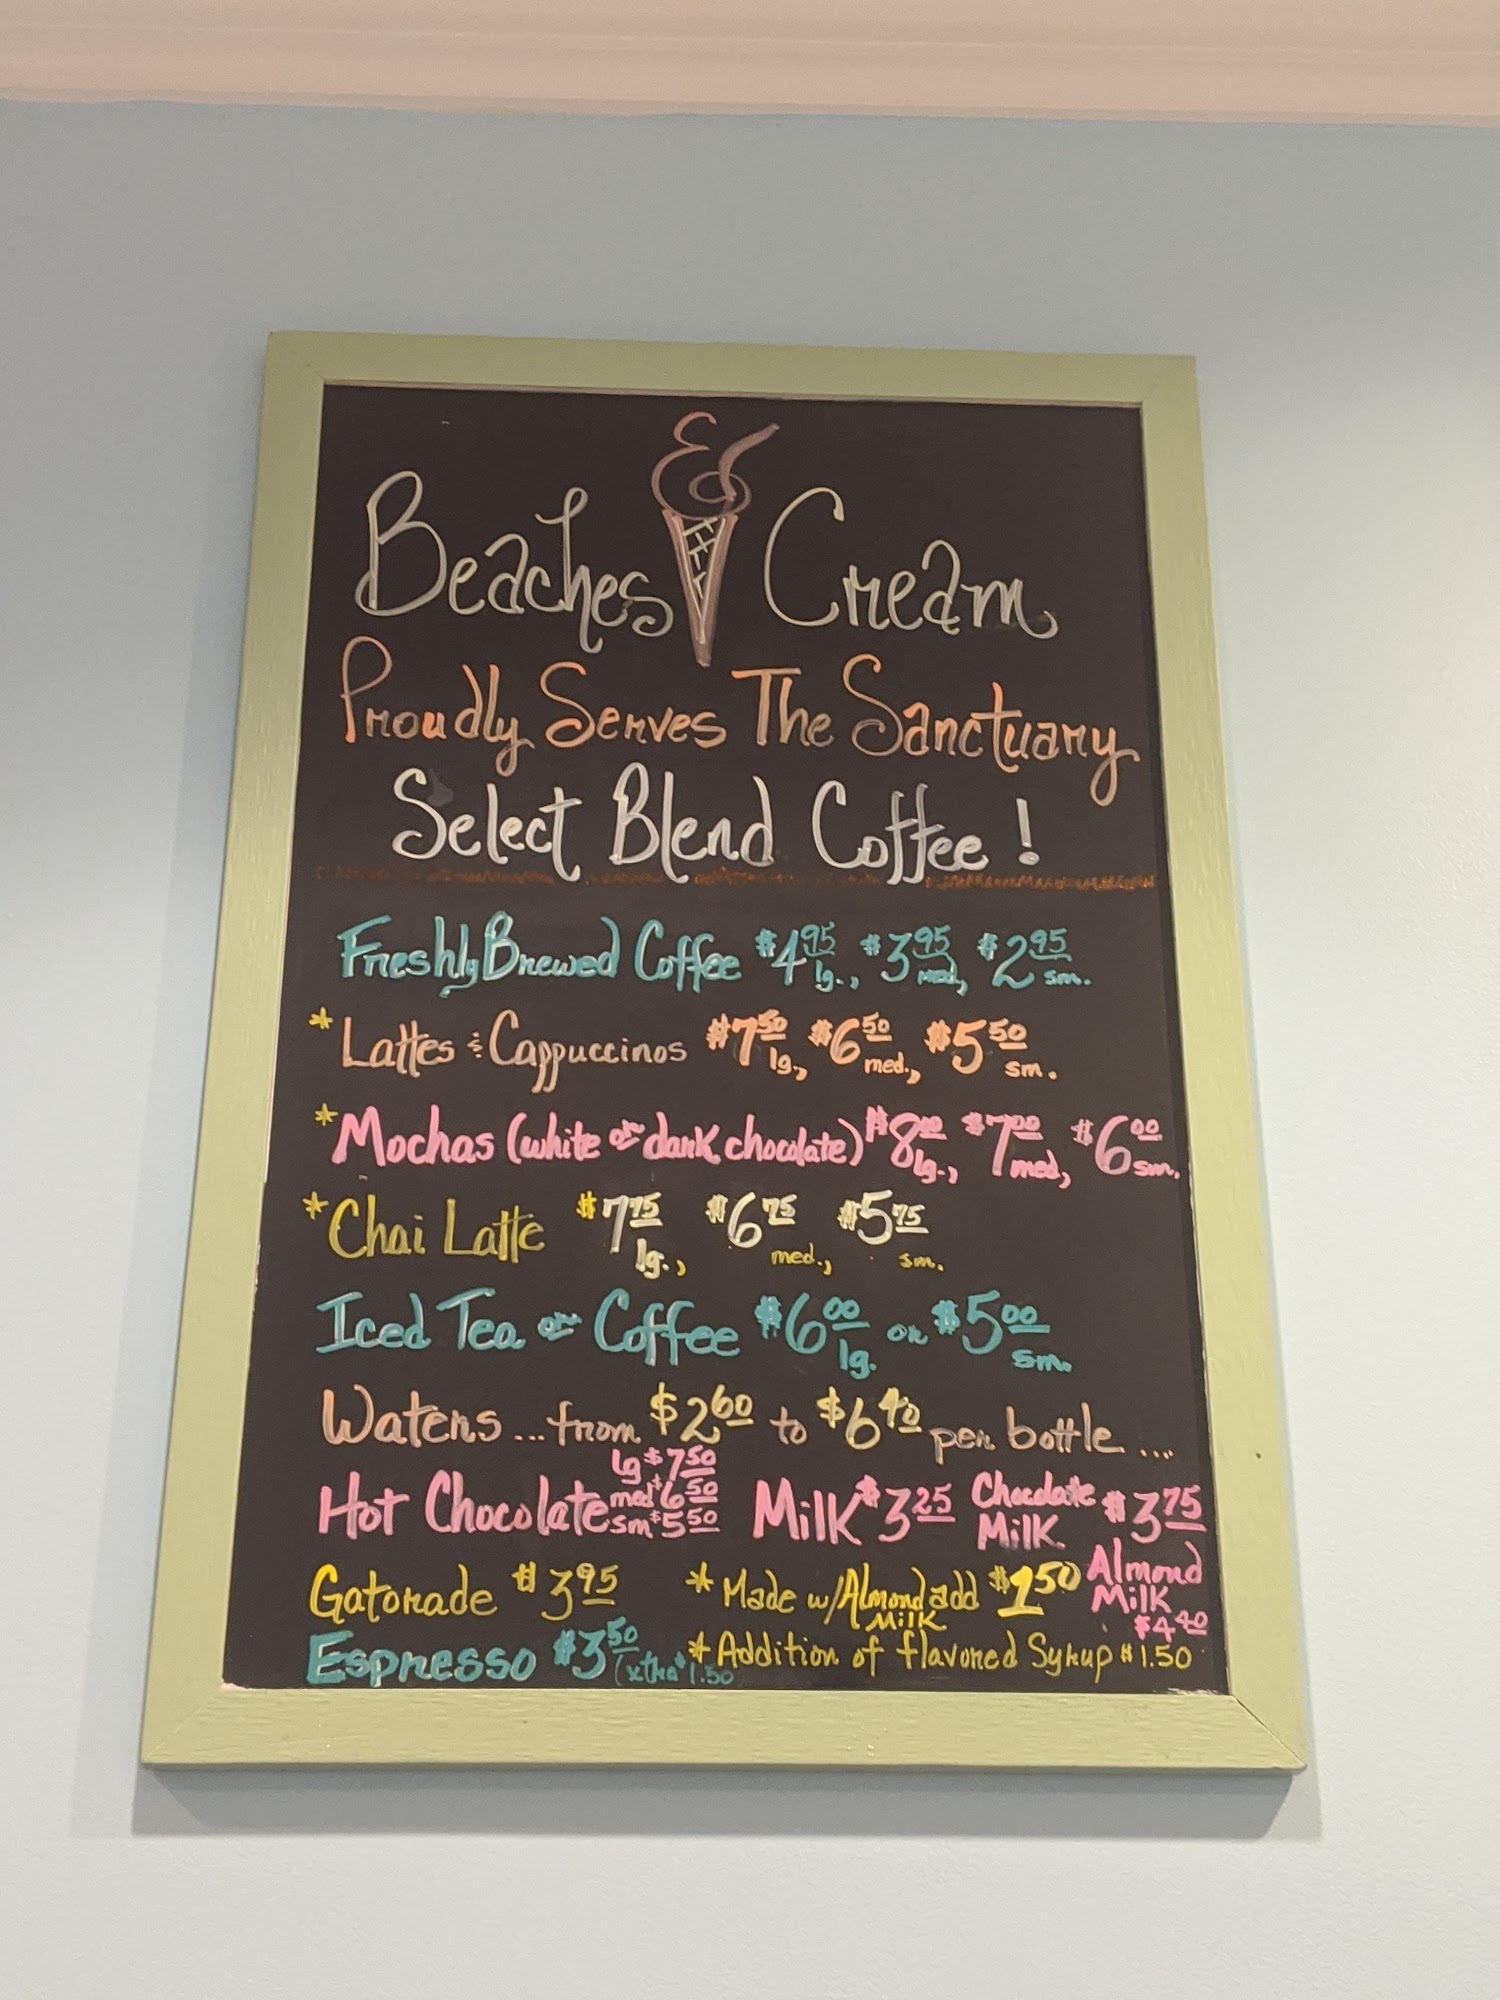 Beaches & Cream
Proudly Serves The Sanctuary
Select Blend Coffee!
Freshly Brewed Coffee $4.95 lg., $3.95 med, $2.95 sm.
* Lattes & Cappuccinos $7.50 lg., $6.50 med., $5.50 sm.
* Mochas (white or dark chocolate) $8.00 lg., $7.00 med, $6.00 sm.
* Chai Latte $7.75 lg., $6.75 med., $5.75 sm.
Iced Tea or Coffee $6.00 lg. or $5.00 sm.
Waters ... from $2.60 to $6.40 per bottle ....
Hot Chocolate lg $7.50 med $6.50 sm $5.50
Milk $3.25
Chocolate Milk $3.75
Almond Milk $4.40
Gatorade $3.95
* Made w/Almond Milk add $1.50
Espresso $3.50 (xtra $1.50
* Addition of flavored Syrup $1.50